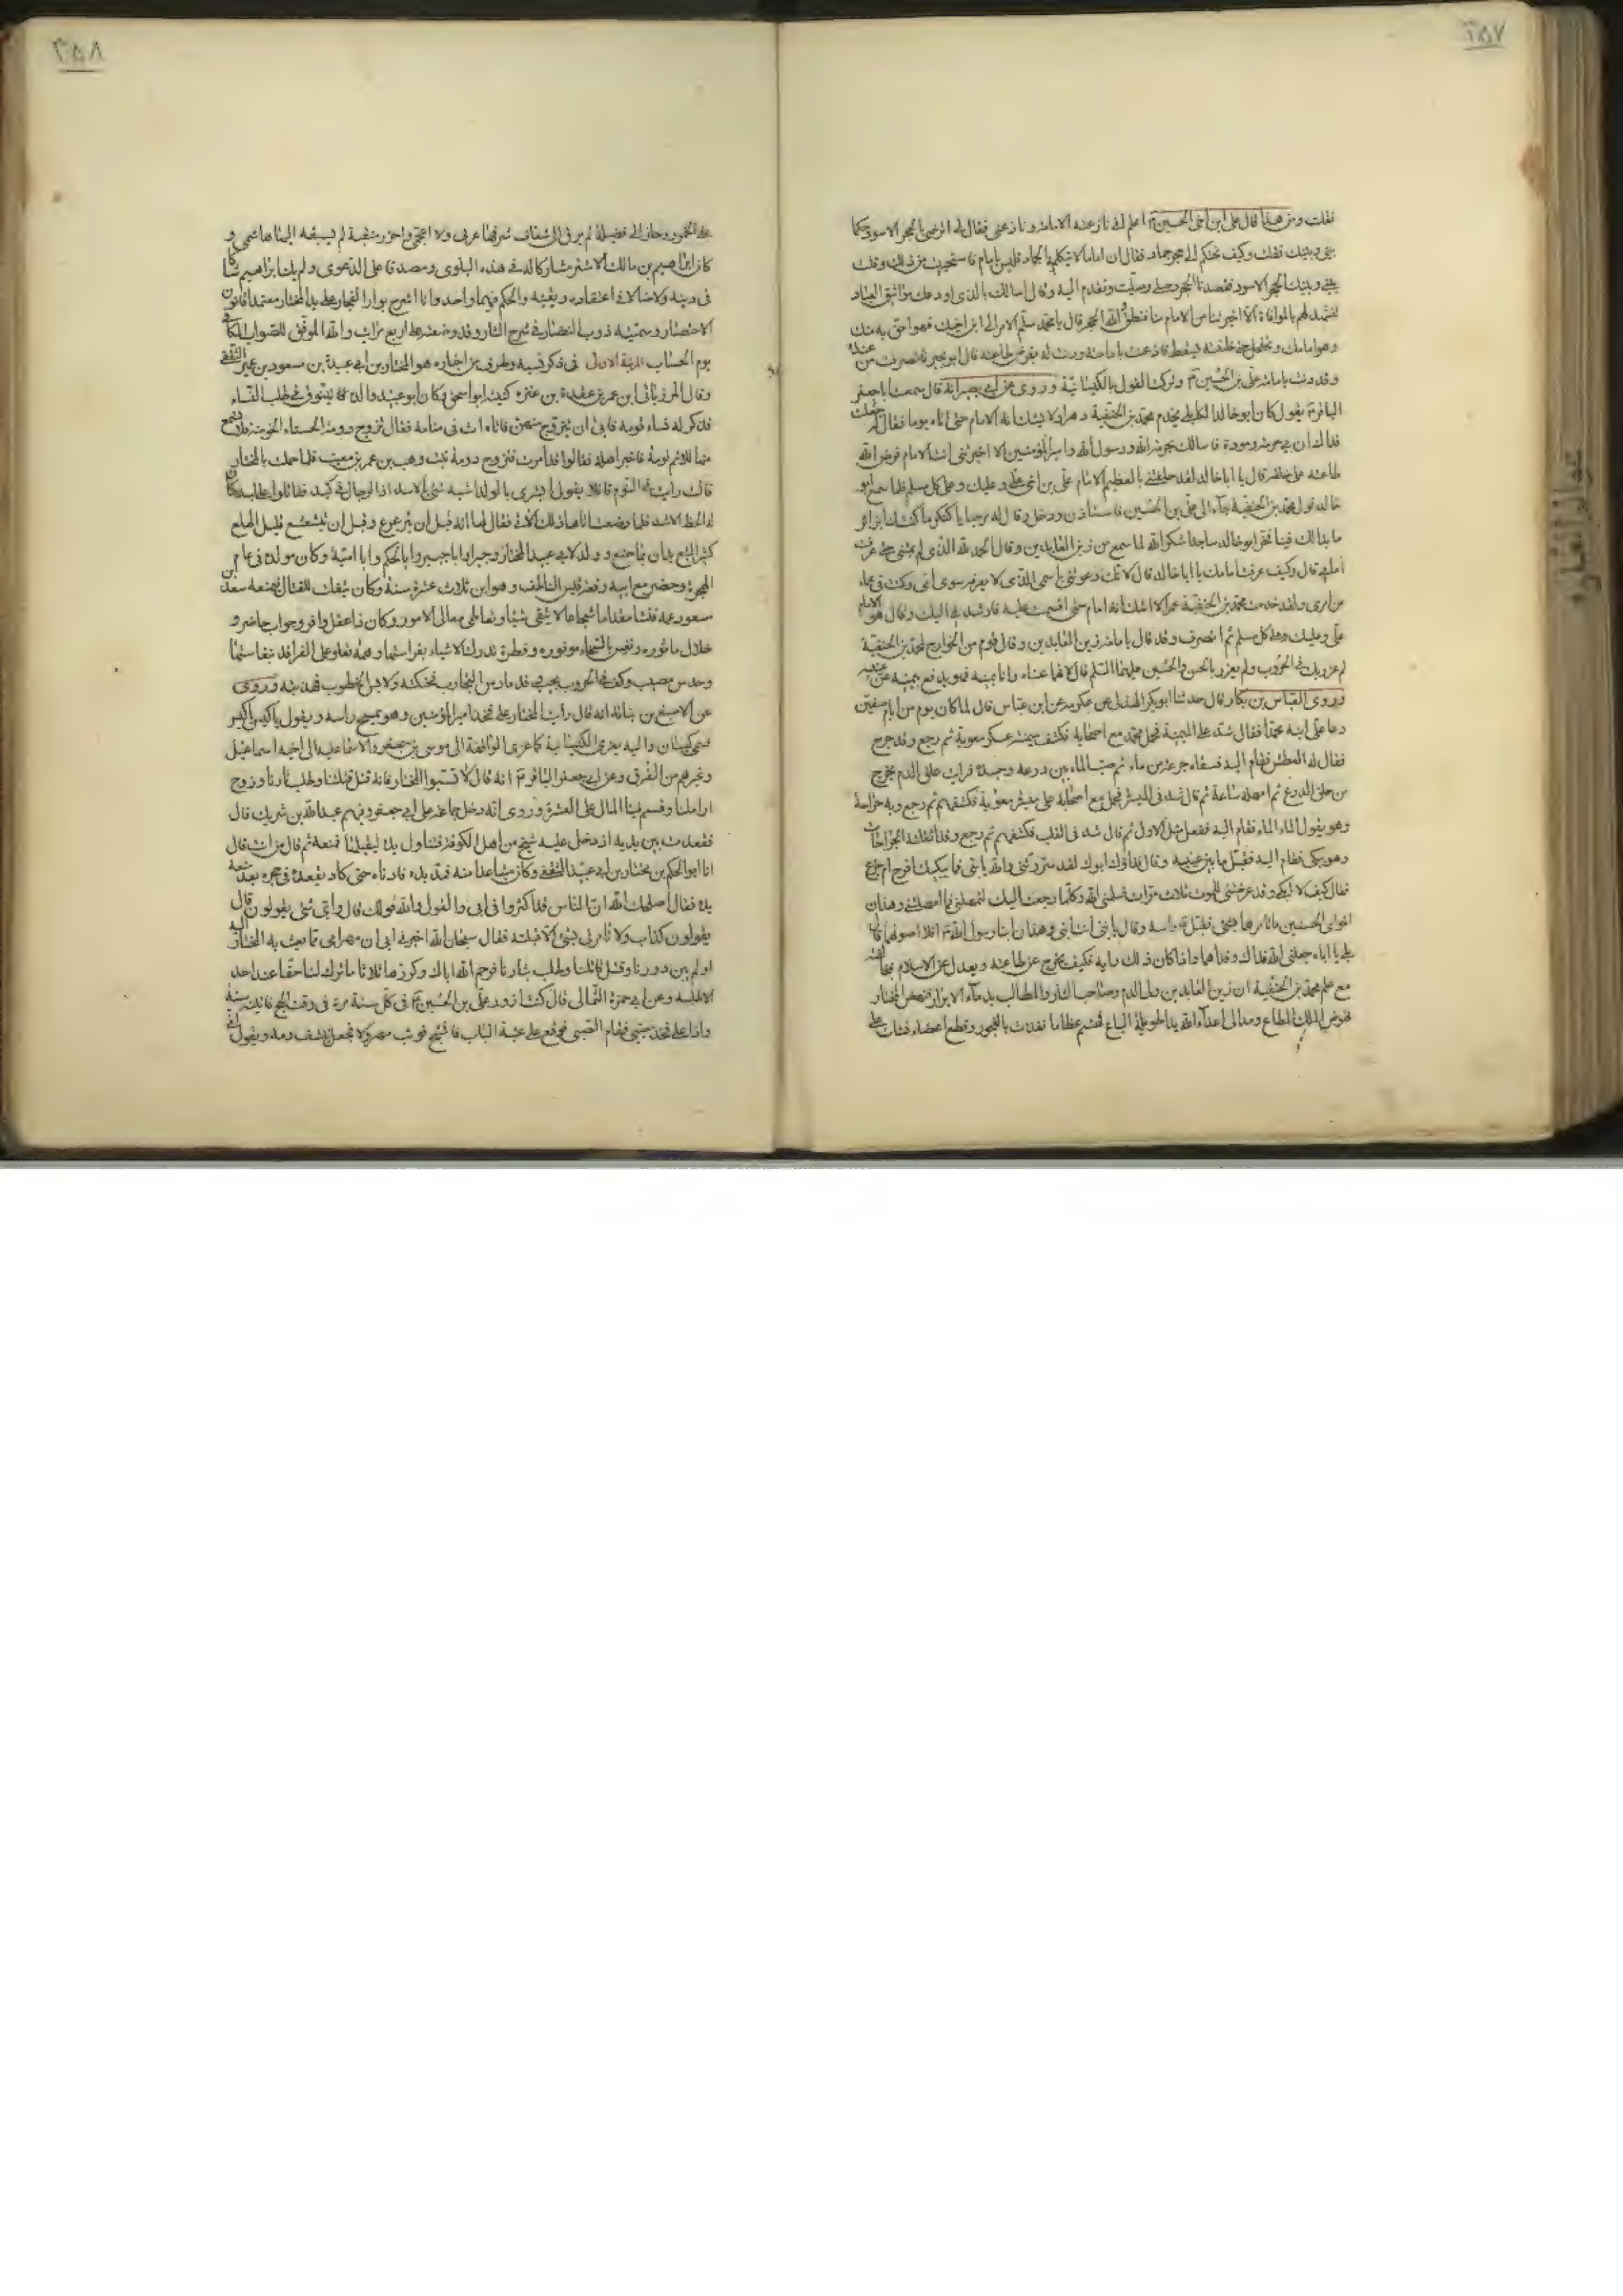 ٣٥٧
فقلت ومن هذا قال علي ابن اخي الحسين ع اعلم اني نازعته الامامة ونازعني فقال لي اترضى بالحجر الاسود حكما
بيني وبينك فقلت وكيف نحتكم الى حجر جماد فقال ان اماما لا يتكلمه الجماد فليس بامام فاستحييت من ذلك وقلت
بيني وبينك الحجر الاسود فقصدنا الحجر وصلى وصليت وتقدم اليه وقال اسالك بالذي اودعك مواثيق العباد
لتشهد لهم بالموافاة الا اخبرتنا من الامام منا فنطق والله الحجر قال يا محمد سلم الامر الى ابن اخيك فهو احق به منك
وهو امامك وتحلحل حتى ظننته يسقط فاذعنت بامامته ودنت له بفرض طاعته قال ابو بجير فانصرفت من عنده
وقد دنت بامامة علي بن الحسين ع وتركت القول بالكيسانية وروي عن ابي بصير انه قال سمعت ابا جعفر
الباقر ع يقول كان ابو خالد الكابلي يخدم محمد بن الحنفية دهرا ولا يشك انه الامام حتى اتاه يوما فقال له جعلت
فداك ان لي حرمة ومودة فاسالك بحرمة الله ورسول الله وامير المؤمنين الا اخبرتني انت الامام فرض الله
طاعته على خلقه قال يا ابا خالد لقد حلفتني بالعظيم الامام علي بن اخي علي وعليك وعلى كل مسلم فلما سمع ابو
خالد قول محمد بن الحنفية جاء الى علي بن الحسين فاستاذن ودخل وقال له مرحبا يا كنكر ما كنت لنا بزائر
ما بدا لك فينا فخر ابو خالد ساجدا شكرا لله لما سمع من زين العابدين وقال الحمد لله الذي لم يمتني حتى عرفت
امامي قال وكيف عرفت امامك يا ابا خالد قال لانك دعوتني باسمي الذي لا يعرفه سوى امي وكنت في عمياء
من امري ولقد خدمت محمد بن الحنفية عمرا لا اشك انه امام حتى اقسمت عليه فارشدني اليك وقال هو الامام
علي وعليك وعلى كل مسلم ثم انصرف وقد قال بامامة زين العابدين وقال قوم من الخوارج لمحمد بن الحنفية
لم غرر بك في الحروب ولم يغرر بالحسن والحسين عليهما السلم قال لانهما عيناه وانا يمينه فهو يدفع بيمينه عن عينيه
وروى العباس بن بكار قال حدثنا ابو بكر الهذلي عن عكرمة عن ابن عباس قال لما كان يوم من ايام صفين
دعا علي ابنه محمدا فقال شد على الميمنة فحمل محمد مع اصحابه فكشف ميمنة عسكر معوية ثم رجع وقد جرح
فقال له العطش فقام اليه فسقاه جرعة من ماء ثم صب الماء بين درعه وجسده فرايت علق الدم يخرج
من حلق الدرع ثم امهله ساعة ثم قال شد في الميسرة فحمل مع اصحابه على ميسرة معوية فكشفهم ثم رجع وبه جراحة
وهو يقول الماء الماء فقام اليه ففعل مثل الاول ثم قال شد في القلب فكشفهم ثم رجع وقد اثقلته الجراحات
وهو يبكي فقام اليه فقبل ما بين عينيه وقال فداك ابوك لقد سررتني والله يا بني فما يبكيك افرح ام جزع
فقال كيف لا ابكي وقد عرضتني للموت ثلاث مرات فسلمني الله وكلما رجعت اليك لتمهلني فما امهلتني وهذان
اخواي الحسن والحسين ما تامرهما بشئ فقبل ع راسه وقال يا بني انت ابني وهذان ابنا رسول الله ص افلا اصونهما قال
بلى يا اباه جعلني الله فداك وفداهما واذا كان ذلك رايه فكيف يخرج عن طاعته ويعدل عن الاسلام بمخالفته
مع علم محمد بن الحنفية ان زين العابدين ولي الدم وصاحب الثار والمطالب بدماء الابرار فنهض المختار
نهوض الملك المطاع ومد الى اعداء الله يدا طويلة الباع فهشم عظاما تغذت بالفجور وقطع اعضاء نشات على
٣٥٨
على الخمور وحاز الى فضيلة لم يرق الى شعاف شرفها عربي ولا اعجمي واحرز منقبة لم يسبقه اليها هاشمي و
كان ابراهيم بن مالك الاشتر مشاركا له في هذه البلوى ومصدقا على الدعوى ولم يك ابراهيم شاكا
في دينه ولا ضالا في اعتقاده ويقينه والحكم فيهما واحد وانا اشرح بوار الفجار على يد المختار معتمدا قانون
الاختصار وسميته ذوب النضار في شرح الثار وقد وضعته على اربع مراتب والله الموفق للصواب المكافي
يوم الحساب المرتبة الاولى في ذكر نسبه وطرف من اخباره هو المختار بن ابي عبيدة بن مسعود بن عمير الثقفي
وقال المرزباني ابن عمير بن عقدة بن عنزة كنيته ابو اسحق وكان ابو عبيد والده يتنوق في طلب النساء
فذكر له نساء قومه فابى ان يتزوج منهن فاتاه ات في منامه فقال تزوج دومة الحسناء الحومة فما تسمع
فيها للائم لومة فاخبر اهله فقالوا قد امرت فتزوج دومة بنت وهب بن عمر بن معتب فلما حملت بالمختار
قالت رايت في النوم قائلا يقول ابشري بالولد اشبه شئ بالاسد اذا الرجال في كبد تقاتلوا على بلد كان
له الحظ الاشد فلما وضعت اتاها ذلك الاتي فقال لها انه قبل ان يترعرع وقبل ان يتشعشع قليل الهلع
كثير التبع يدان بما صنع وولد لابي عبيد المختار وجبرا وابا جبير وابا الحكم وابا امية وكان مولده في عام
الهجرة وحضر مع ابيه وقعة قيس الناطف وهو ابن ثلاث عشرة سنة وكان يتفلت للقتال فيمنعه سعد بن
مسعود عمه فنشا مقداما شجاعا لا يتقي شيئا وتعاطى معالي الامور وكان ذا عقل وافر وجواب حاضر و
خلال ماثورة ونفس بالسخاء موفورة وفطرة تدرك الاشياء بفراستها وهمة تعلو على الفراقد بنفاستها
وحدس مصيب وكف في الحروب مجيب قد مارس التجارب فحنكته ولابس الخطوب فهذبته وروي
عن الاصبغ بن نباتة انه قال رايت المختار على فخذ امير المؤمنين وهو يمسح راسه ويقول يا كيس يا كيس
فسمي كيسان واليه يعزى الكيسانية كما عزي الواقفة الى موسى بن جعفر والاسماعيلية الى اخيه اسماعيل
وغيرهم من الفرق وعن ابي جعفر الباقر ع انه قال لا تسبوا المختار فانه قتل قتلتنا وطلب ثارنا وزوج
اراملنا وقسم فينا المال على العسرة وروي انه دخل جماعة على ابي جعفر وفيهم عبد الله بن شريك قال
فقعدت بين يديه اذ دخل عليه شيخ من اهل الكوفة فتناول يده ليقبلها فمنعه ثم قال من انت قال
انا ابو الحكم بن مختار بن ابي عبيد الثقفي وكان متباعدا منه فمد يده فادناه حتى كاد يقعده في حجره بعد منعه
يده فقال اصلحك الله ان الناس قد اكثروا في ابي والقول والله قولك قال واي شئ يقولون قال
يقولون كذاب ولا تامرني بشئ الا قبلته فقال سبحان الله اخبرني ابي ان مهر امي مما بعث به المختار اليه
اولم يبن دورنا وقتل قاتلنا وطلب بثارنا فرحم الله اباك وكررها ثلاثا ما ترك لنا حقا عند احد
الا طلبه وعن ابي حمزة الثمالي قال كنت ازور علي بن الحسين ع في كل سنة مرة في وقت الحج فاتيته سنة
واذا على فخذه صبي فقام الصبي فوقع على عتبة الباب فانشج فوثب مهرولا فجعل ينشف دمه ويقول اني